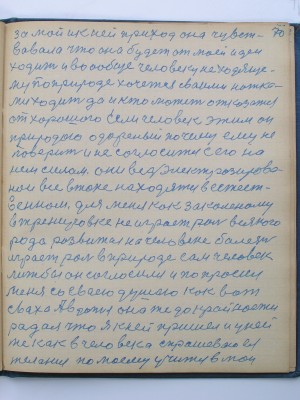 70
за мой и к ней приход она чувст-
вовала что она будет от моей идеи
ходит и вообще человеку не ходяще-
му по природе хочется своими ногами
ходить да и кто может отказатся
от хорошого Если человек этим он
природою одареный почему ему не
поверит и не согласится с его на
нем силами они ведь электрозирова-
ной все в токе находятся в естест-
венном, для меня как закаленому
в тренировке не играет рол всякого
рода развитая на человеке болезн
играет рол в природе сам человек
лижбы он согласился и попросил
меня со своею душою как вот
сваха Авдотья она же до крайности
рада что я к ней пришел и у ней
же как в человека спрашевается
желания по моему учится в мои